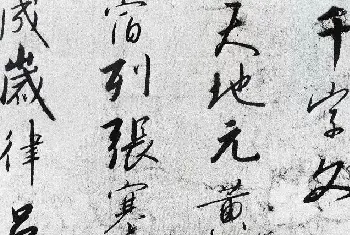 千字文
天地元黄
宿列張寒
成歲律吕